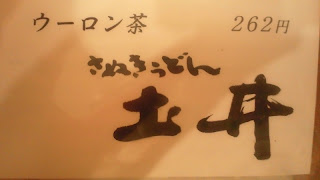 ウーロン茶 262円
さぬきうどん
土井